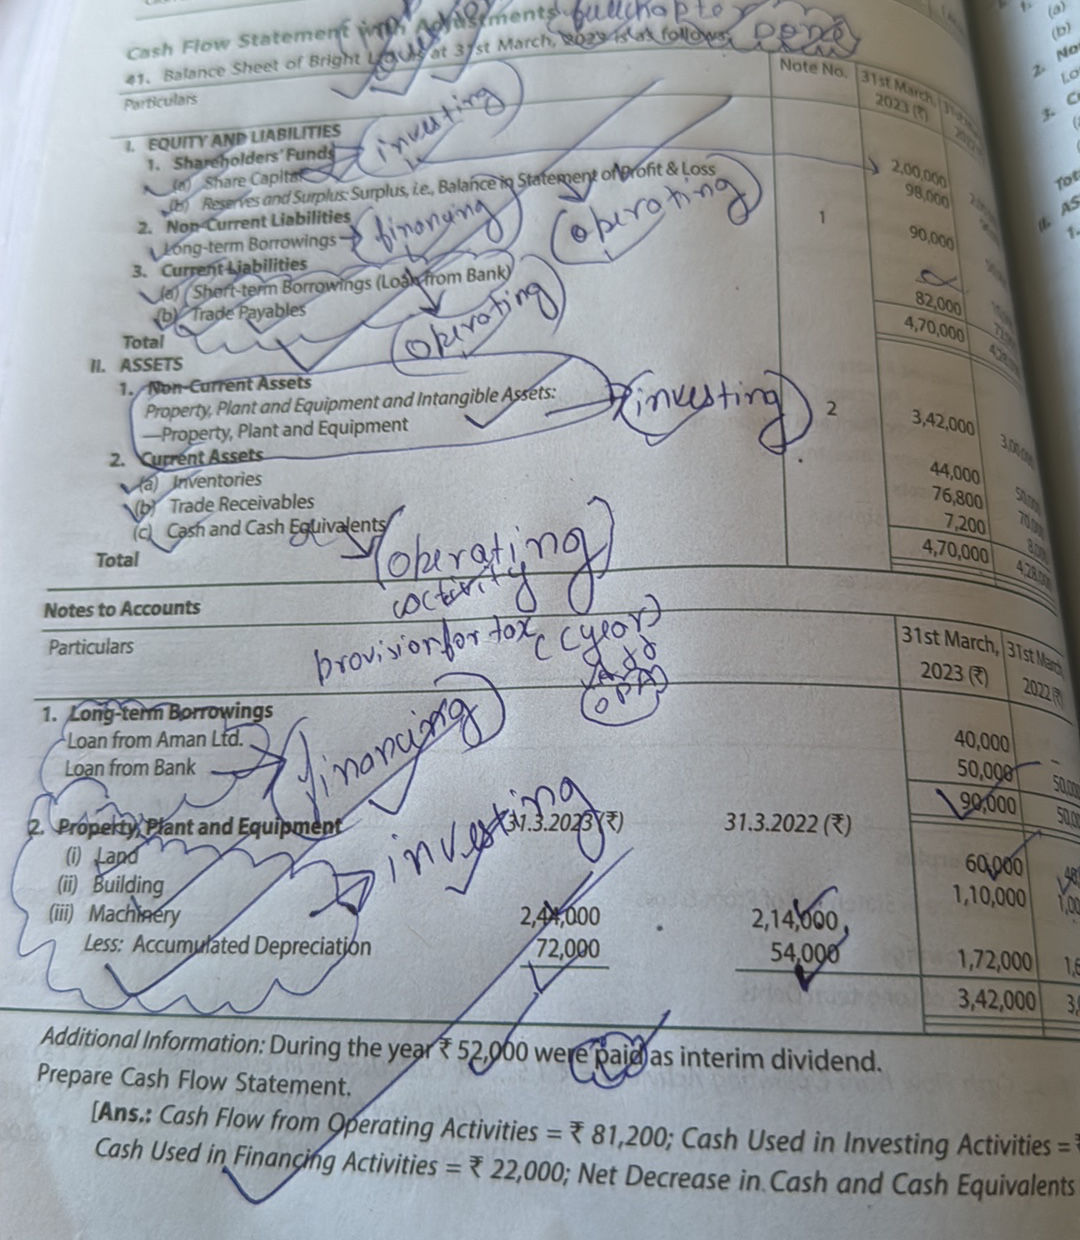 Cash Flow Statement with Adjustments full chapter Done
41. Balance Sheet of Bright at 31st March, 2023 is as follows:
Particulars Note No. 31st March, 2023 (₹)
I. EQUITY AND LIABILITIES
1. Shareholders' Funds (investing)
(a) Share Capital 2,00,000
(b) Reserves and Surplus: Surplus, i.e., Balance in Statement of Profit & Loss 98,000
2. Non-Current Liabilities (operating)
Long-term Borrowings financing 1 90,000
3. Current Liabilities
(a) Short-term Borrowings (Loan from Bank)
(b) Trade Payables (operating) 82,000
Total 4,70,000
II. ASSETS
1. Non-Current Assets
Property, Plant and Equipment and Intangible Assets:
—Property, Plant and Equipment (investing) 2 3,42,000
2. Current Assets
(a) Inventories 44,000 50,000
(b) Trade Receivables 76,800
(c) Cash and Cash Equivalents 7,200
(operating) activity
Total 4,70,000
Notes to Accounts
Particulars 31st March, 2023 (₹) 31st March 2022
provision for tax (year)
1. Long-term Borrowings
Loan from Aman Ltd. 40,000 –
Loan from Bank 50,000
(financing) 90,000
2. Property, Plant and Equipment 31.3.2023 (₹) 31.3.2022 (₹)
investing
(i) Land 60,000
(ii) Building 1,10,000
(iii) Machinery 2,44,000 2,14,000
Less: Accumulated Depreciation 72,000 54,000 1,72,000
3,42,000
Additional Information: During the year ₹ 52,000 were paid as interim dividend.
Prepare Cash Flow Statement.
[Ans.: Cash Flow from Operating Activities = ₹ 81,200; Cash Used in Investing Activities =
Cash Used in Financing Activities = ₹ 22,000; Net Decrease in Cash and Cash Equivalents